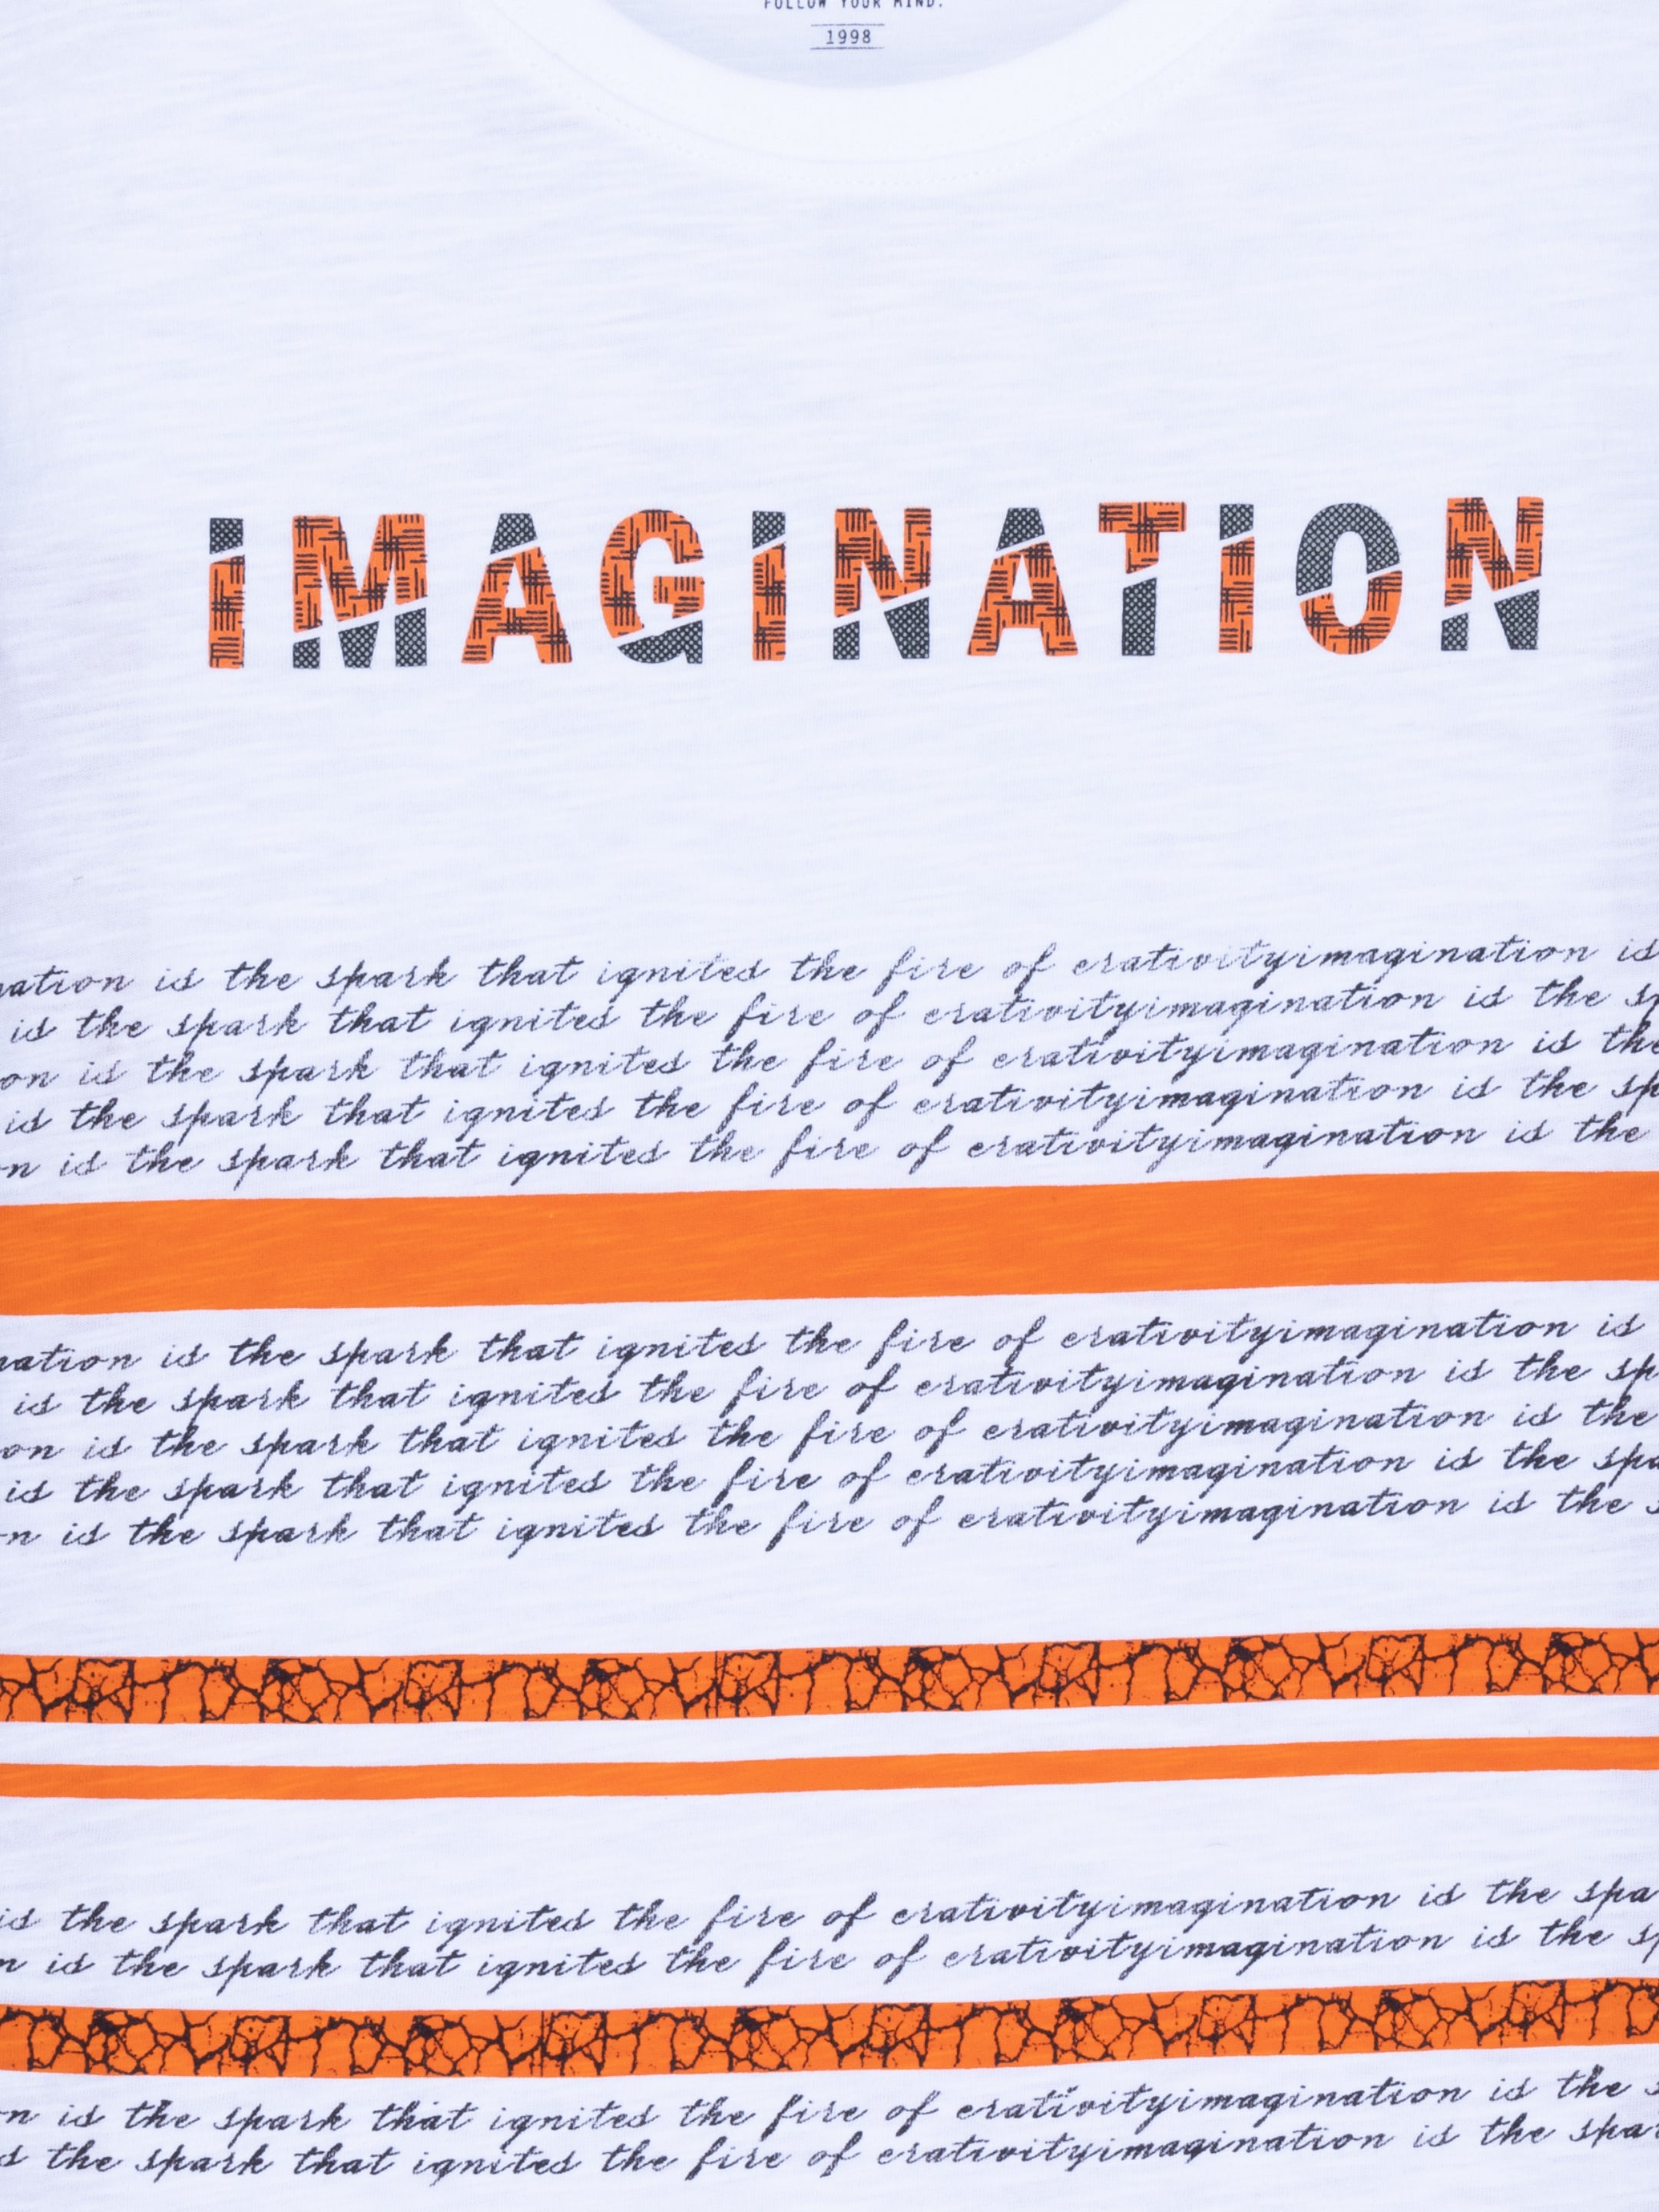 FOLLOW YOUR MIND.
1998
IMAGINATION
nation is the spark that ignites the fire of erativityimagination is
is the spark that ignites the fire of erativityimagination is the sp
on is the spark that ignites the fire of erativityimagination is the
is the spark that ignites the fire of erativityimagination is the sp
n is the spark that ignites the fire of erativityimagination is the
nation is the spark that ignites the fire of erativityimagination is
is the spark that ignites the fire of erativityimagination is the sp
on is the spark that ignites the fire of erativityimagination is the
is the spark that ignites the fire of erativityimagination is the spa
n is the spark that ignites the fire of erativityimagination is the s
is the spark that ignites the fire of erativityimagination is the spa
n is the spark that ignites the fire of erativityimagination is the sp
n is the spark that ignites the fire of erativityimagination is the s
s the spark that ignites the fire of erativityimagination is the spar